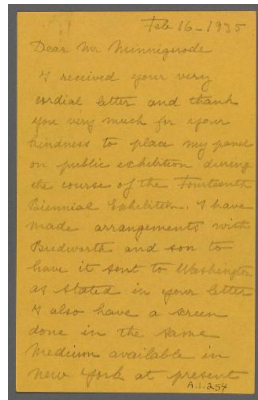 Feb 16-1935
Dear Mr Minnigerode
I received your very
cordial letter and thank
you very much for your
kindness to place my panel
on public exhibition during
the course of the Fourteenth
Biennial Exhibition. I have
made arrangements with
Budworth and son to
have it sent to Washington
as stated in your letter
I also have a screen
done in the same
medium available in
New York at present
A.1.254